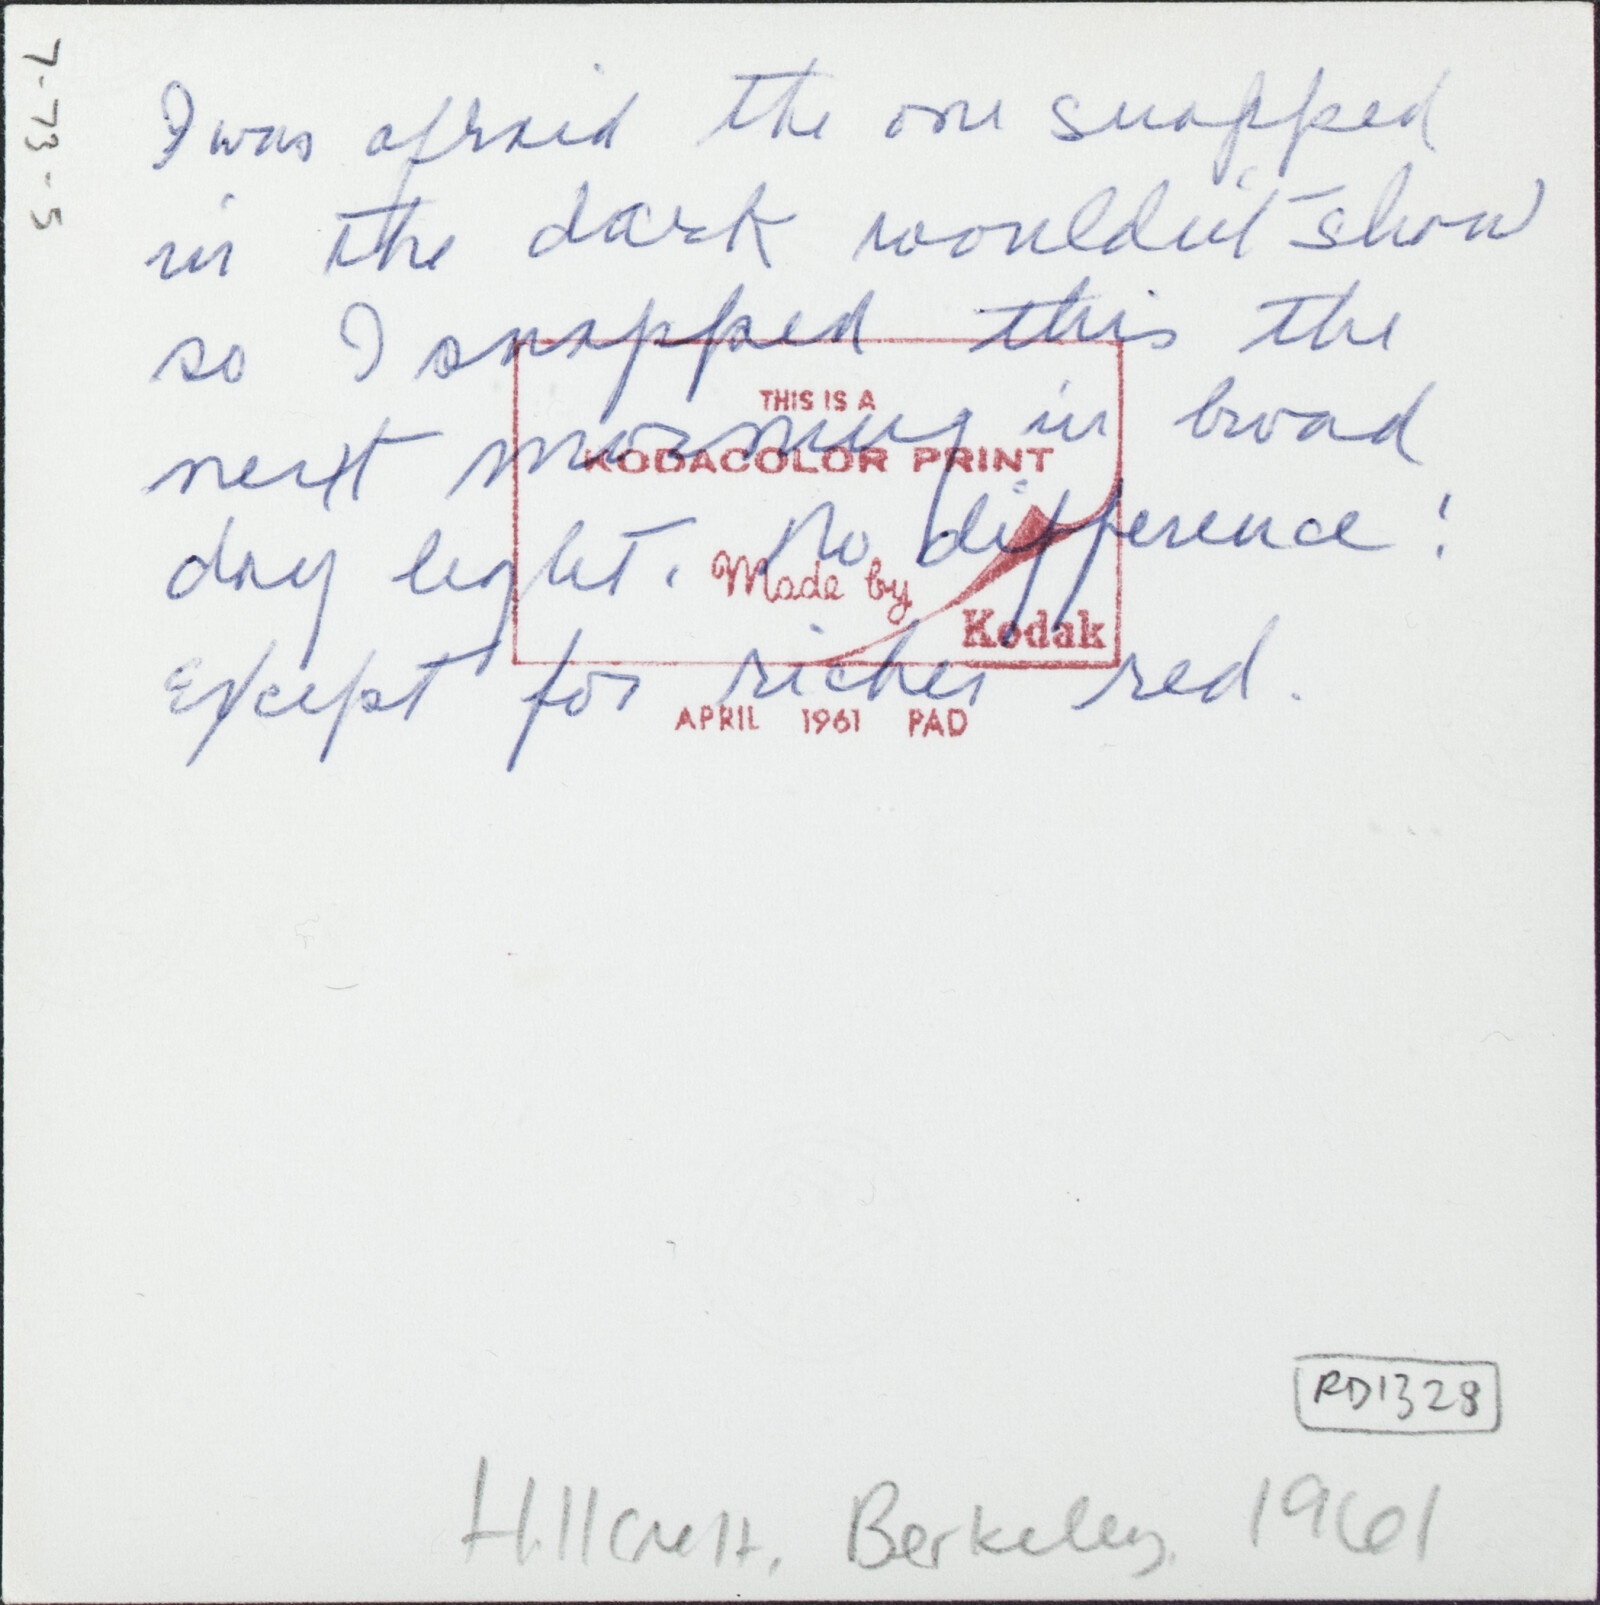 7-73-5
I was afraid the one snapped
in the dark wouldn't show
so I snapped this the
next morning in broad
day light. No difference!
Except for richer red.
THIS IS A
KODACOLOR PRINT
Made by
Kodak
APRIL 1961 PAD
RD1328
Hillcrest, Berkeley, 1961